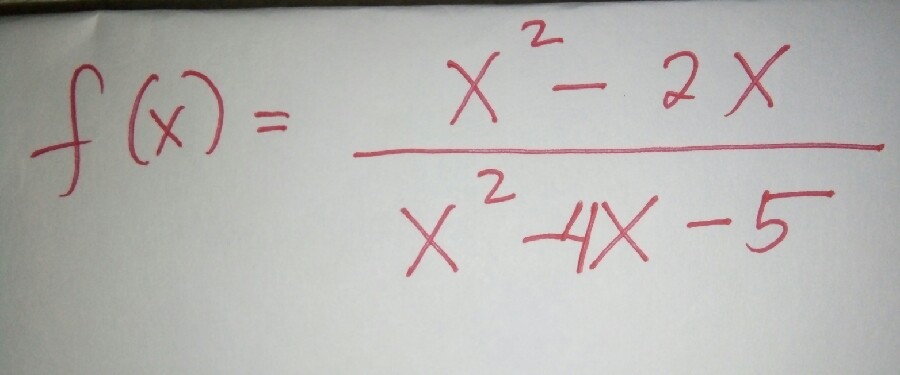 f(x) = x² - 2x
x² - 4x - 5